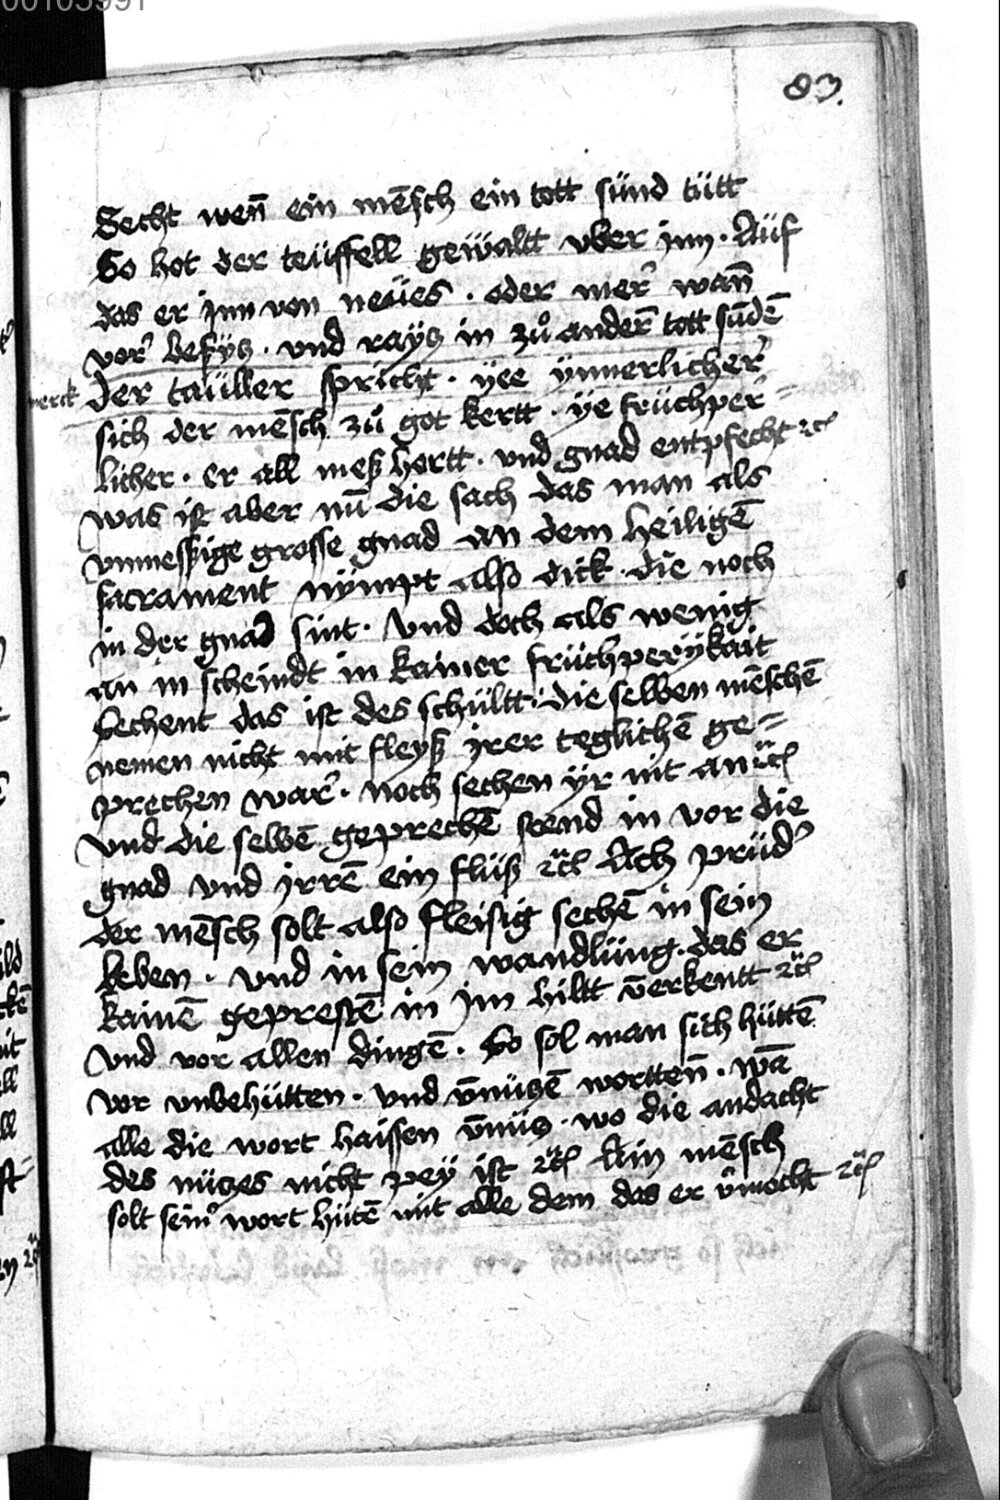 00103991
83.
Secht wen̄ ein mēsch ein tott sünd tütt
So hot der teüffell gewaltt vber jnn. Auf
das er jnn von neües. oder mer̓ wān
vor̓ besÿtz. vnd raytz in zů ander̄ tott sūdē
merck Der taüller spricht. ÿee ÿnnerlicher̓
sich der mēsch zů got kertt. ÿe früchper̓=
licher. er all meß hortt. vnd gnad entpfecht ꝛcͣ
was ist aber nū die sach das man als
vnmessige grosse gnad an dem heiligē
sacrament nÿmpt also dick. die noch
in der gnad sint. Vnd doch als wenig
an in scheindt in kainer früchperÿkait
sechent das ist des schültt. die selben mēschē
nemen nicht mit fleyß jrer teglichē ge=
prechen war̓. noch sechen ÿr nit an ꝛcͣ
vnd die selbē geprechē stend in vor die
gnad vnd jrrē ein flüß ꝛcͣ Ach prüd̓
der mēsch solt also fleisig sechē in sein
leben. vnd in sein wandlüng. das er
kainē geprestē in jm hiltt v̄erkentt ꝛcͣ
Vnd vor allen dingē. So sol man sich hüttē
vor vnbehütten. vnd v̄nützē wortten̄. wā
alle die wort haissen v̄nütz. wo die andacht
des nützes nicht pey ist ꝛcͣ Ain mēsch
solt sein̓ wort hütē mit alle dem das er v̄mocht ꝛcͣ